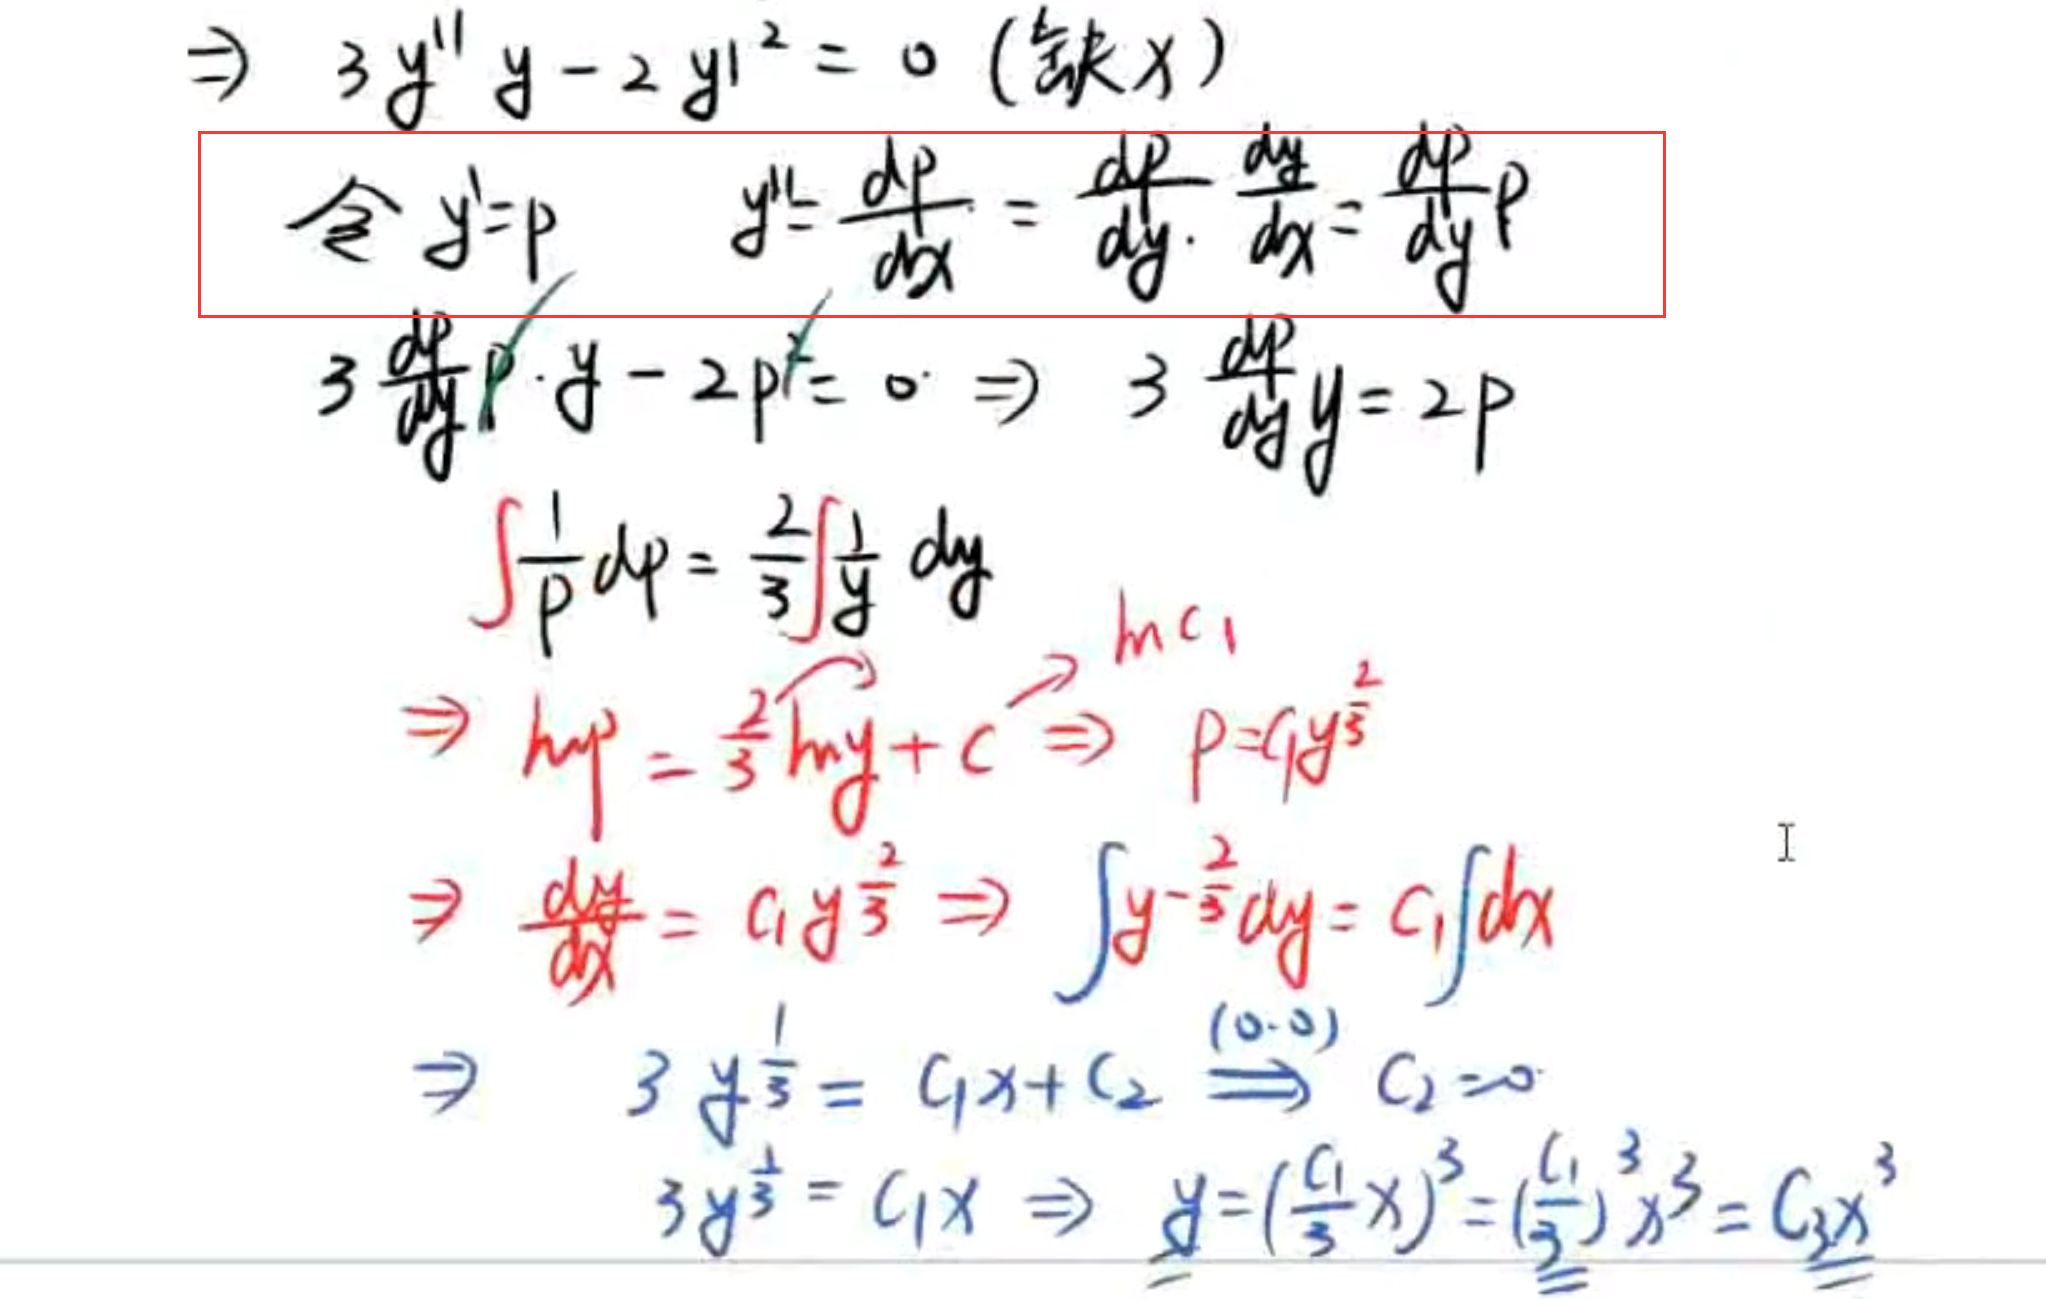 ⇒ 3y''y - 2y'² = 0 (缺x)
令 y'=p y''= dp/dx = dp/dy · dy/dx = dp/dy p
3 dp/dy p · y - 2p² = 0 ⇒ 3 dp/dy y = 2p
∫ 1/p dp = 2/3 ∫ 1/y dy
ln C₁
⇒ ln p = 2/3 ln y + C ⇒ p = C₁y^(2/3)
⇒ dy/dx = C₁ y^(2/3) ⇒ ∫ y^(-2/3) dy = C₁ ∫ dx
(0·0)
⇒ 3 y^(1/3) = C₁x + C₂ ⇒ C₂ = 0
3y^(1/3) = C₁x ⇒ y = (C₁/3 x)³ = (C₁/3)³ x³ = C₃x³